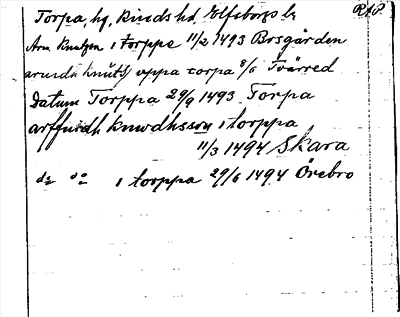 Torpa, hg, Kinds hd, Elfsborgs l. RAP.
Arn. Knutzen i torppe 11/2 1493 Bosgården
arundh knutz uppa torpa 8/6 Tvärred
Datum Torppa 29/9 1493 Torpa
arffuidh knwdhsson i torppa
11/3 1494 Skara
do do i torppa 29/6 1494 Örebro